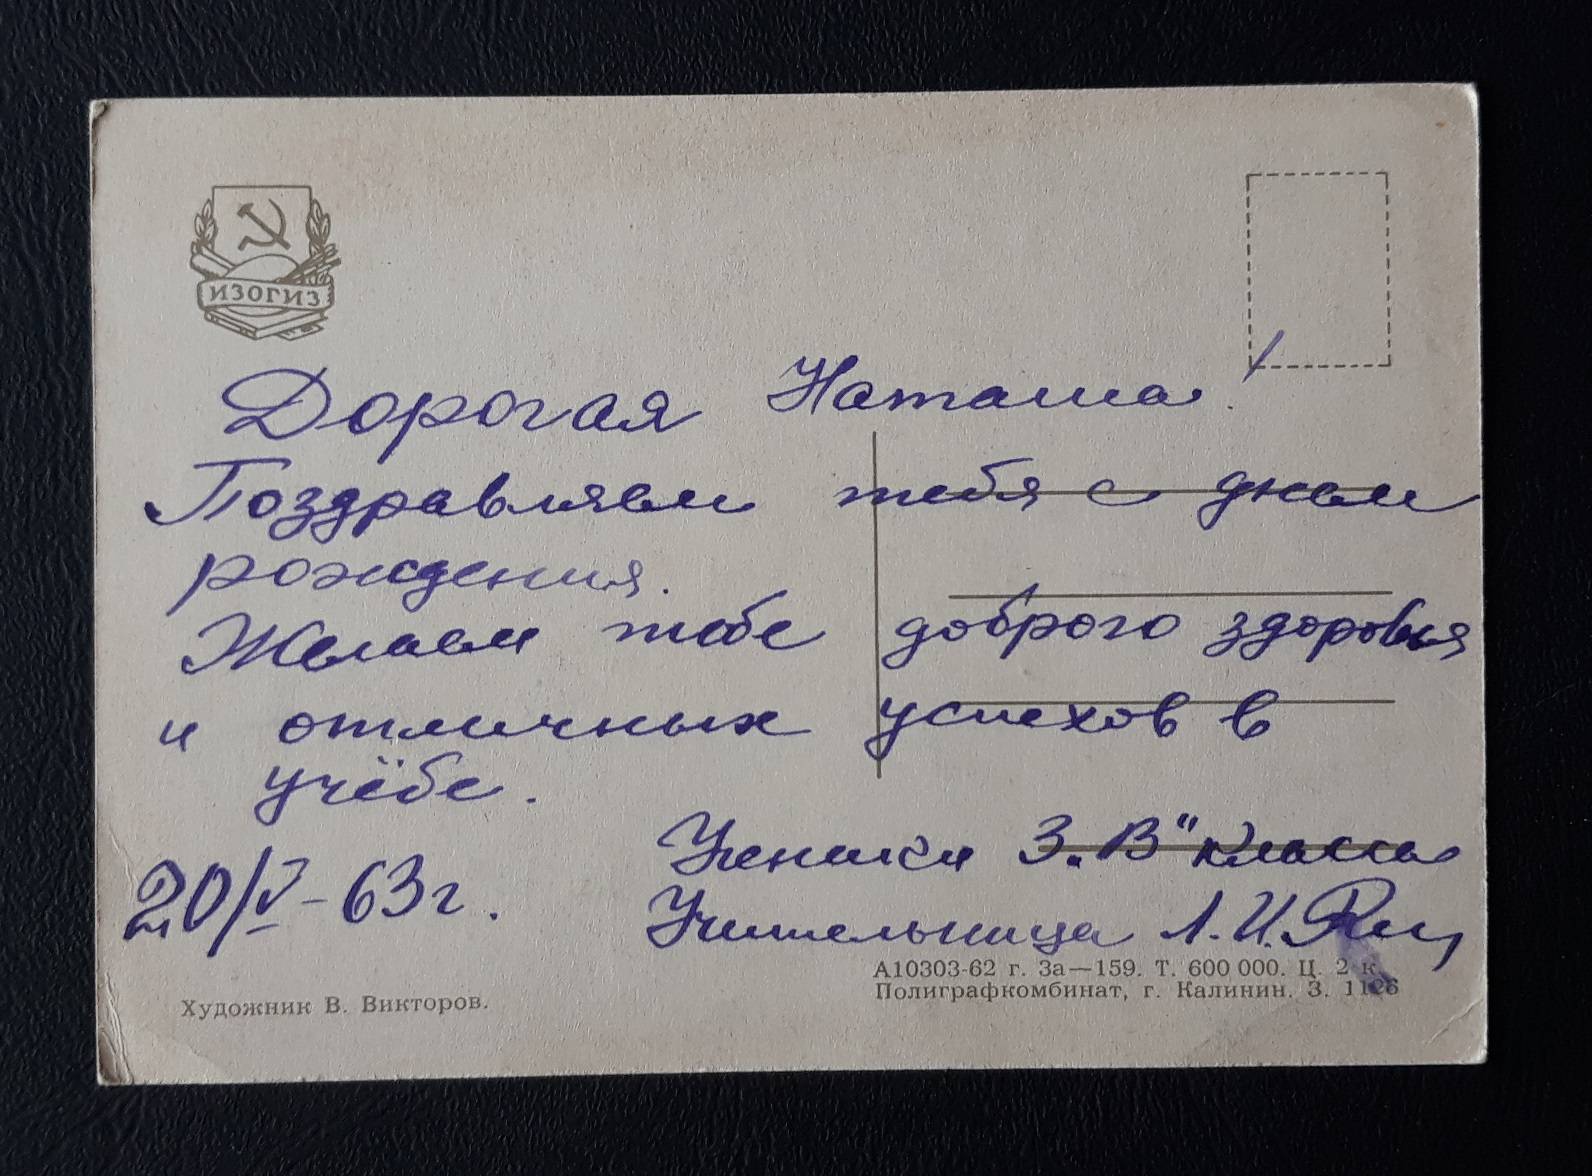 ИЗОГИЗ
Дорогая Наташа!
Поздравляем тебя с днем
рождения.
Желаем тебе доброго здоровья
и отличных успехов в
учёбе.
Ученики 3 „В" класса
20/V-63 г.
Учительница Л. И.
А10303-62 г. За—159. Т. 600 000. Ц. 2 к.
Полиграфкомбинат, г. Калинин. З. 1126
Художник В. Викторов.